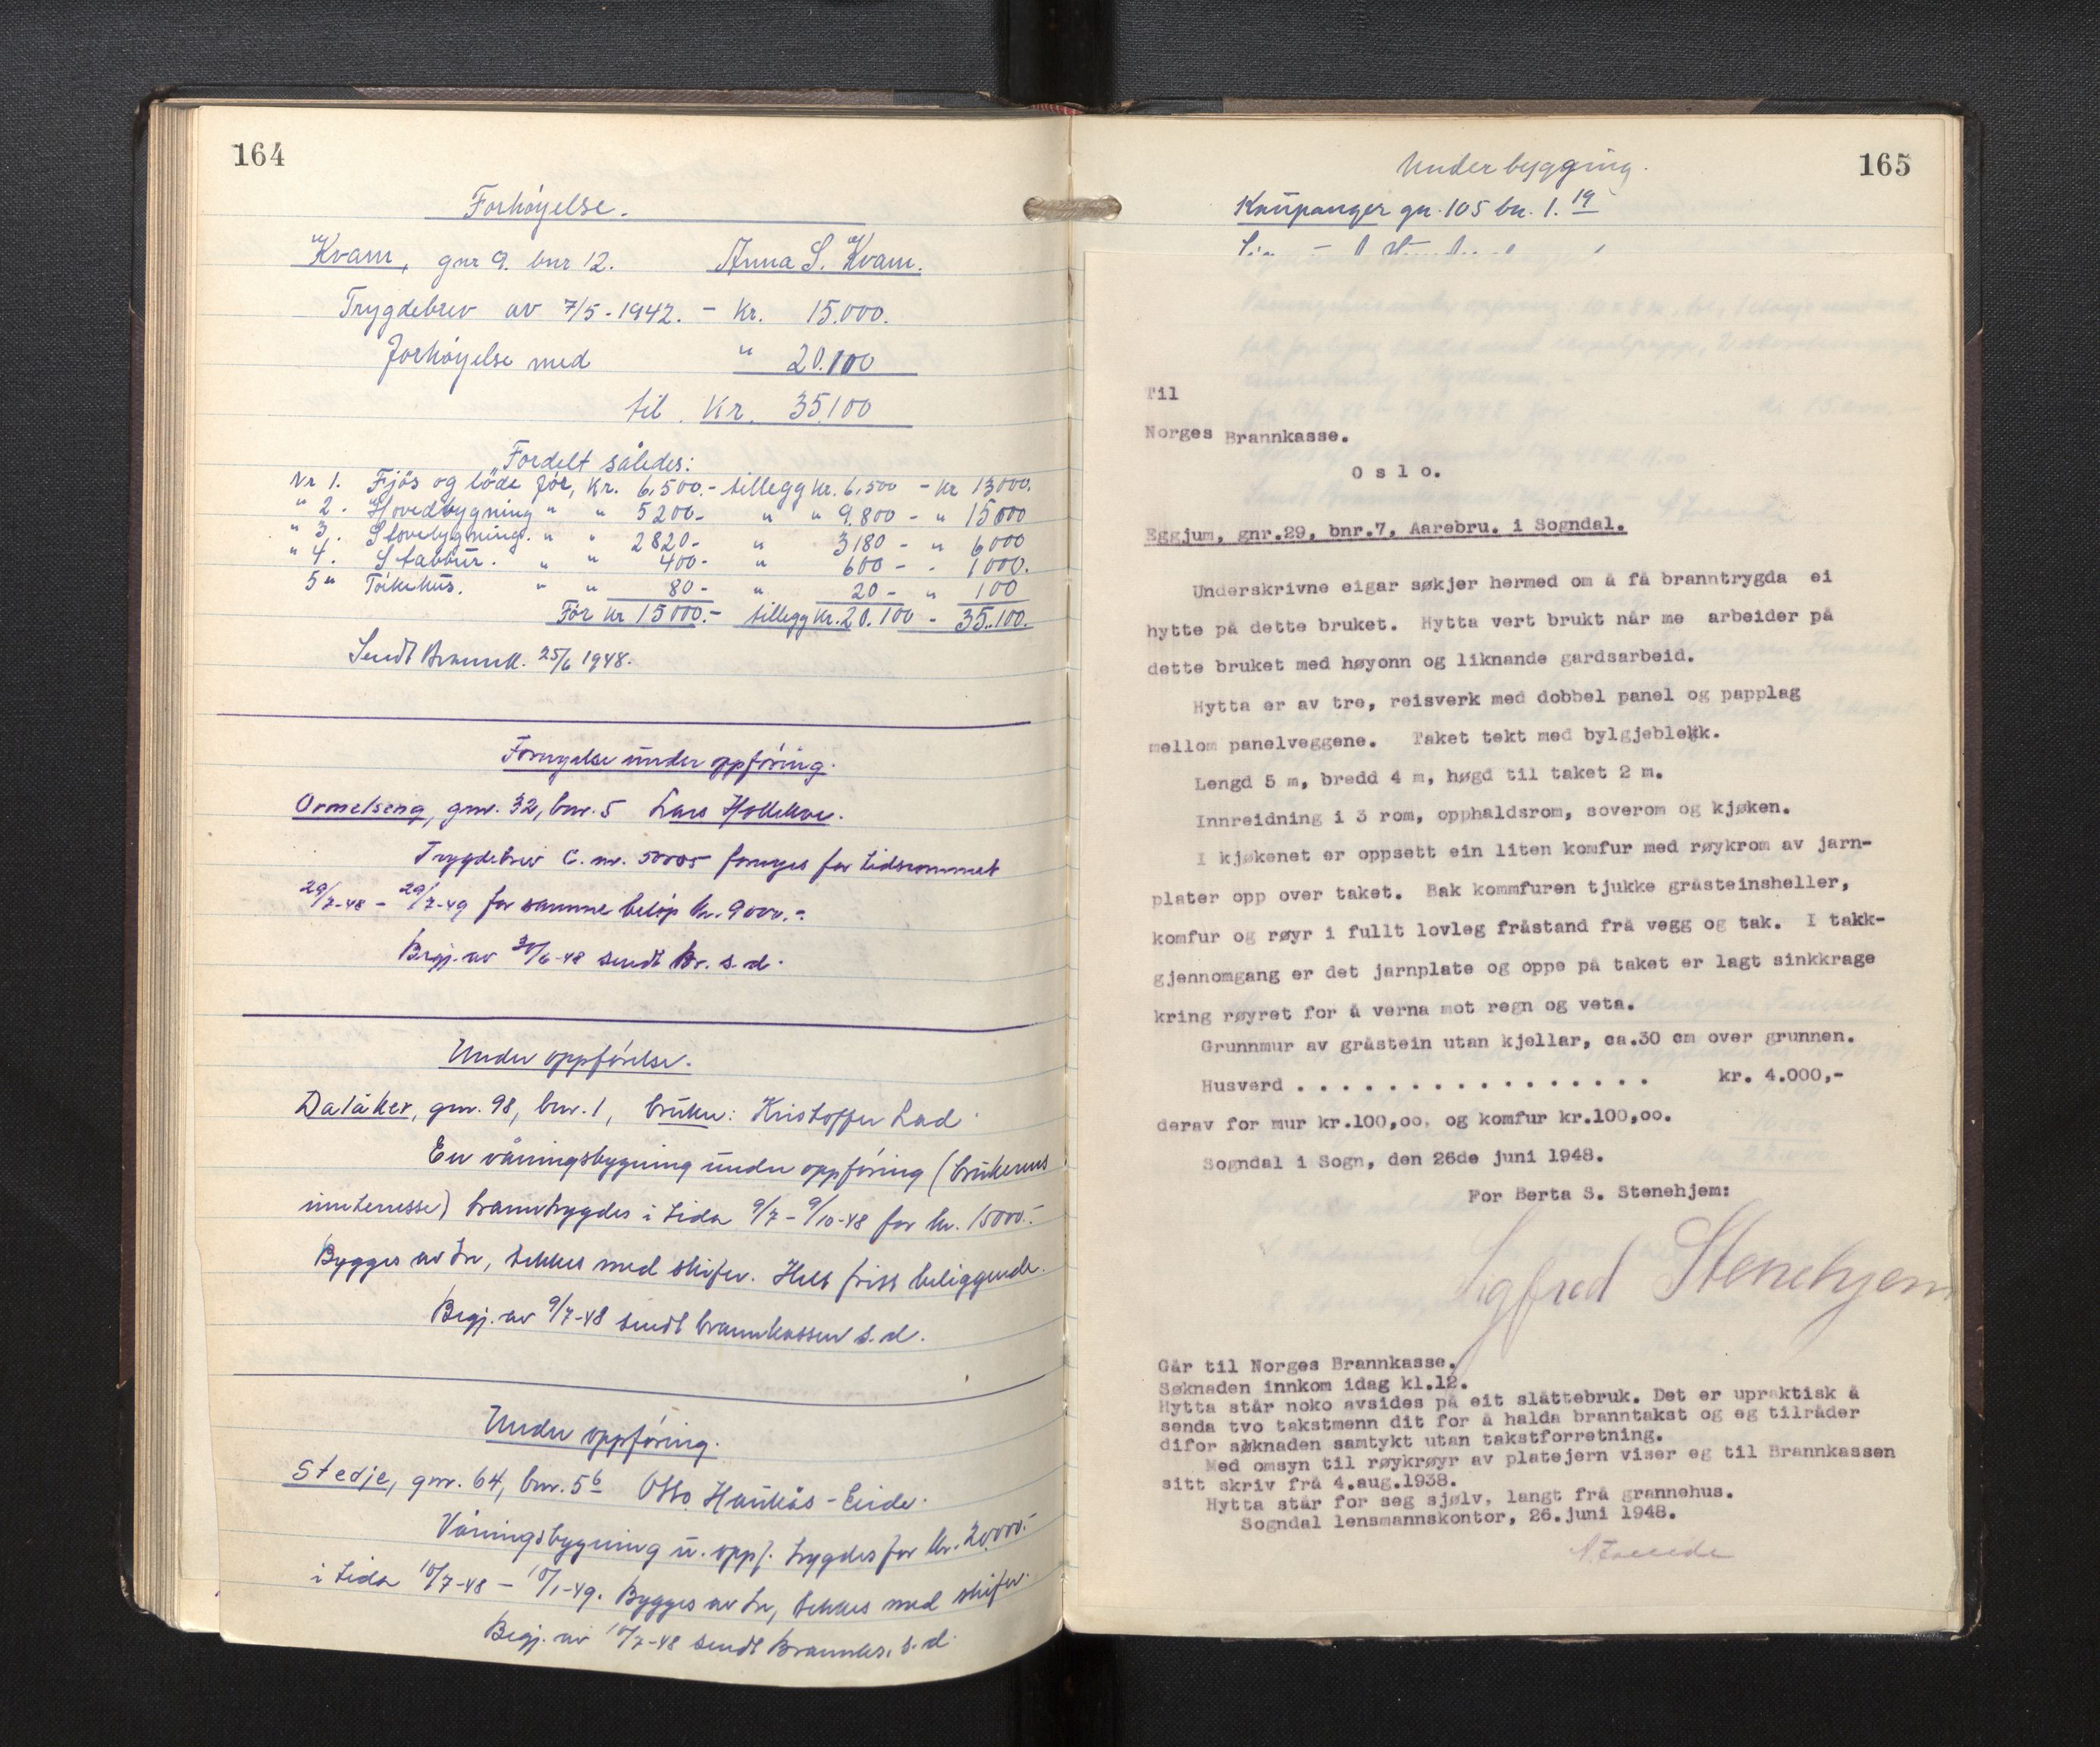 164
Forhøyelse.
Kvam, gnr 9. bnr 12. Anna S. Kvam.
Trygdebrev av 7/5-1942. - Kr. 15.000.
Forhøyelse med " 20.100
til. Kr. 35100
Fordelt således:
Nr 1. Fjös og löde før, Kr. 6.500.- tillegg kr. 6,500 - Kr 13000.
" 2. Hovedbygning " " 5200- " " 9.800 - " 15000
" 3. Stovebygning. " " 2820- " 3180 - " 6000
" 4. Stabbur. " " 400- " 600 - . 1000.
5 " Törkehus. " " 80- " 20 - " 100
Før Kr 15000.- tillegg Kr. 20.100 - 35.100.
Sendt Brannk. 25/6 1948.
Fornyelse under oppføring.
Ormelseng, gnr. 32, bnr. 5 Lars
Trygdebrev C. nr. fornyes for tidsrommet
29/7-48 - 29/7-49 for samme beløp kr. 9000.-
Begj. av 30/6-48 sendt Br. s.d.
Under oppførelse.
Dalåker, gnr. 98, bnr. 1, bruker: Kristoffer Lad.
En våningsbygning under oppføring (brukerens
interesse) branntrygdes i tida 9/7 - 9/10-48 for kr. 15000.-
Bygges av tre, tekkes med skifer. Helt fritt beliggende.
Begj. av 9/7-48 sendt brannkassen s.d.
Under oppføring.
Stedje, gnr. 64, bnr. 56 Otto Haukås-Eide.
Våningsbygning u. oppf. trygdes for kr. 20.000.-
i tida 10/7-48 - 10/1-49. Bygges av tre, tekkes med skifer.
Begj. av 10/7-48 sendt Brannks. s.d.
165
Under bygging.
Kaupanger gn. 105 bn. 1. 19
Til
Norges Brannkasse.
O s l o.
Eggjum, gnr.29, bnr.7, Aarebru. i Sogndal.
Underskrivne eigar søkjer hermed om å få branntrygda ei
hytte på dette bruket. Hytta vert brukt når me arbeider på
dette bruket med høyonn og liknande gardsarbeid.
Hytta er av tre, reisverk med dobbel panel og papplag
mellom panelveggene. Taket tekt med bylgjeblekk.
Lengd 5 m, bredd 4 m, høgd til taket 2 m.
Innreidning i 3 rom, opphaldsrom, soverom og kjøken.
I kjøkenet er oppsett ein liten komfur med røykrom av jarn-
plater opp over taket. Bak kommfuren tjukke gråsteinsheller,
komfur og røyr i fullt lovleg fråstand frå vegg og tak. I takk-
gjennomgang er det jarnplate og oppe på taket er lagt sinkkrage
kring røyret for å verna mot regn og veta.
Grunnmur av gråstein utan kjellar, ca.30 cm over grunnen.
Husverd . . . . . . . . . . . . . . . . kr. 4.000,-
derav for mur kr.100,oo. og komfur kr.100,oo.
Sogndal i Sogn, den 26de juni 1948.
For Berta S. Stenehjem:
Sigfred Stenehjem
Går til Norges Brannkasse.
Søknaden innkom idag kl.12.
Hytta står noko avsides på eit slåttebruk. Det er upraktisk å
senda tvo takstmenn dit for å halda branntakst og eg tilråder
difor søknaden samtykt utan takstforretning.
Med omsyn til røykrøyr av platejern viser eg til Brannkassen
sitt skriv frå 4.aug.1938.
Hytta står for seg sjølv, langt frå grannehus.
Sogndal lensmannskontor, 26.juni 1948.